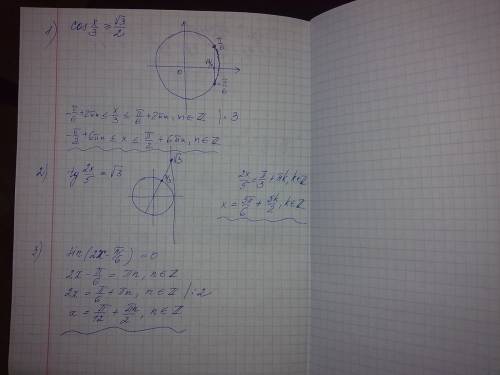 1) cos x/3 ≥ √3/2
π/6
0
-π/6
-π/6 + 2πn ≤ x/3 ≤ π/6 + 2πn, n∈Z |·3
-π/2 + 6πn ≤ x ≤ π/2 + 6πn, n∈Z
2) tg 2x/5 = √3
√3
2x/5 = π/3 + πk, k∈Z
x = 5π/6 + 5k/2, k∈Z
3) sin(2x - π/6) = 0
2x - π/6 = πn, n∈Z
2x = π/6 + πn, n∈Z |:2
x = π/12 + πn/2, n∈Z